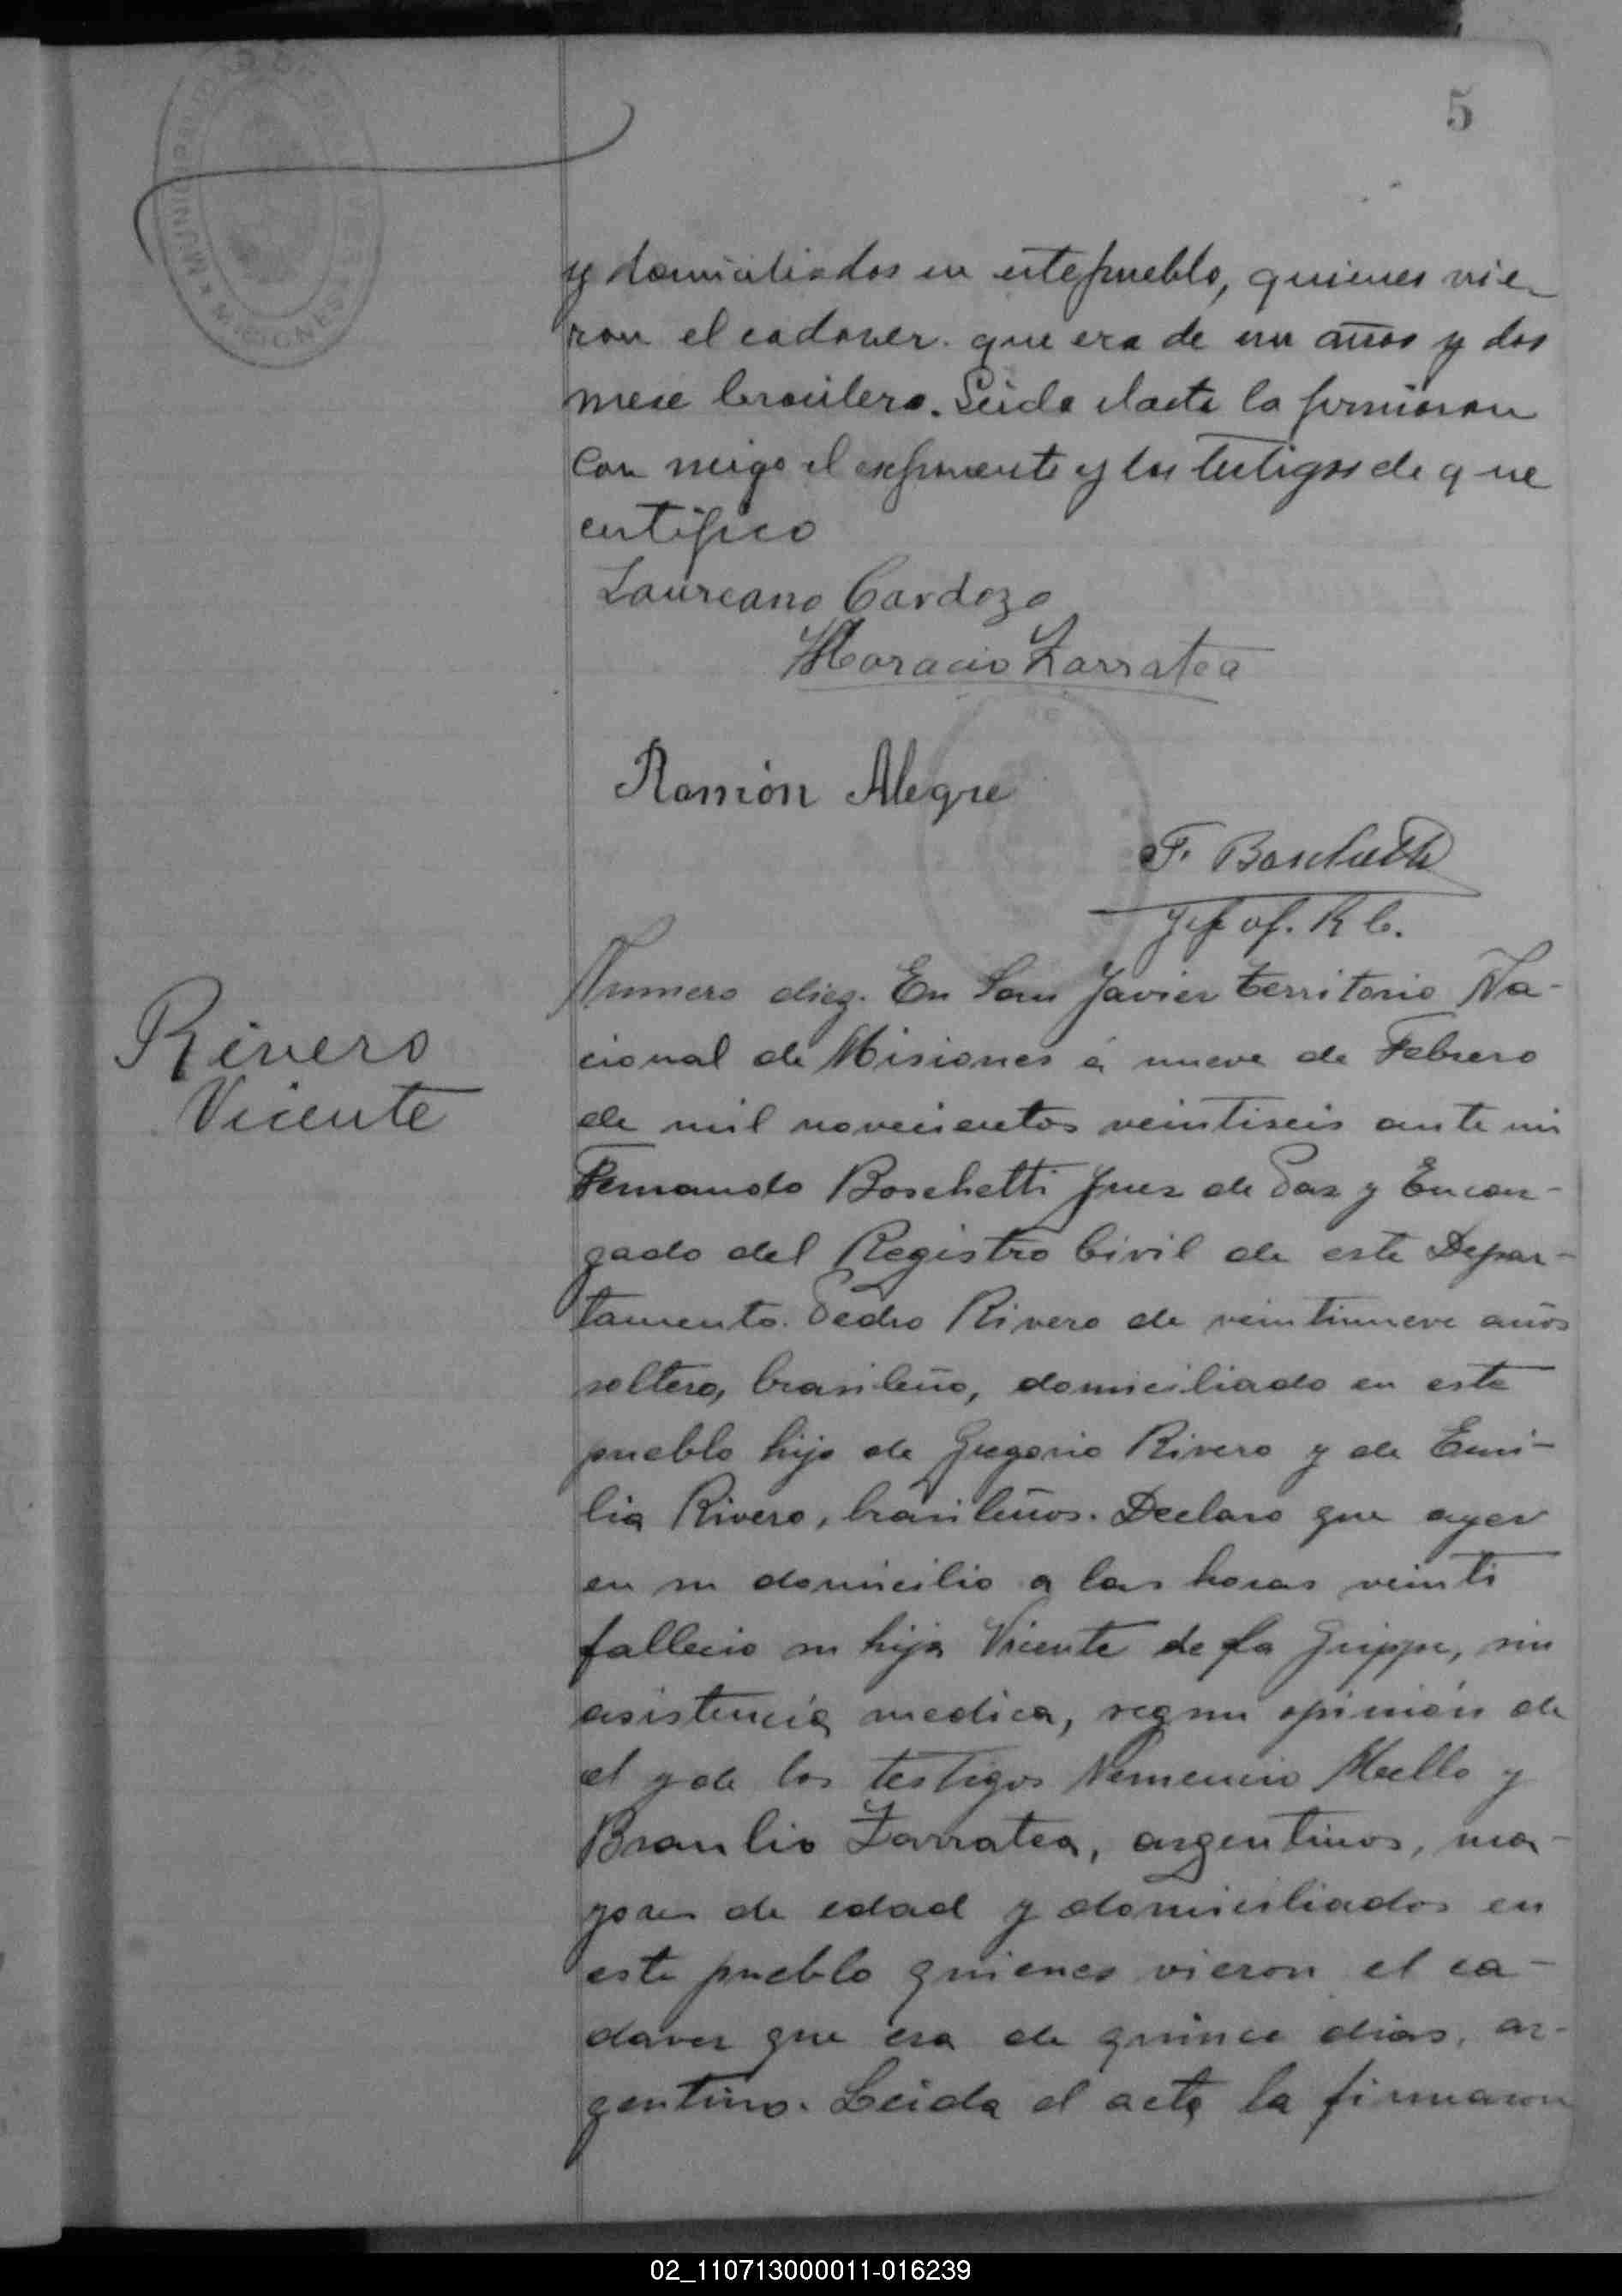 5
y domiciliados en este pueblo, quienes vie-
ron el cadaver que era de un años y dos
mese brasilero. Leida el acta la firmaron
con migo el exponente y los testigos de que
certifico
Laureano Cardozo
Horacio Zarratea
Ramón Alegre
F. Boschetti
Jefe of. R C.
Rivero
Vicente
Numero diez. En San Javier territorio Na-
cional de Misiones á nueve de Febrero
de mil novecientos veintiseis ante mi
Fernando Boschetti Juez de Paz y Encar-
gado del Registro Civil de este Depar-
tamento. Pedro Rivero de veintinueve años
soltero, brasileño, domiciliado en este
pueblo hijo de Gregorio Rivero y de Emi-
lia Rivero, brasileños. Declaro que ayer
en su domicilio a las horas veinti
fallecio su hijo Vicente de la Grippe, sin
asistencia medica, segun opinión de
el y de los testigos Nemencio Mello y
Braulio Zarratea, argentinos, ma-
yores de edad y domiciliados en
este pueblo quienes vieron el ca-
daver que era de quince dias, ar-
gentino. Leida el acta la firmaron
MISIONES
02_110713000011-016239